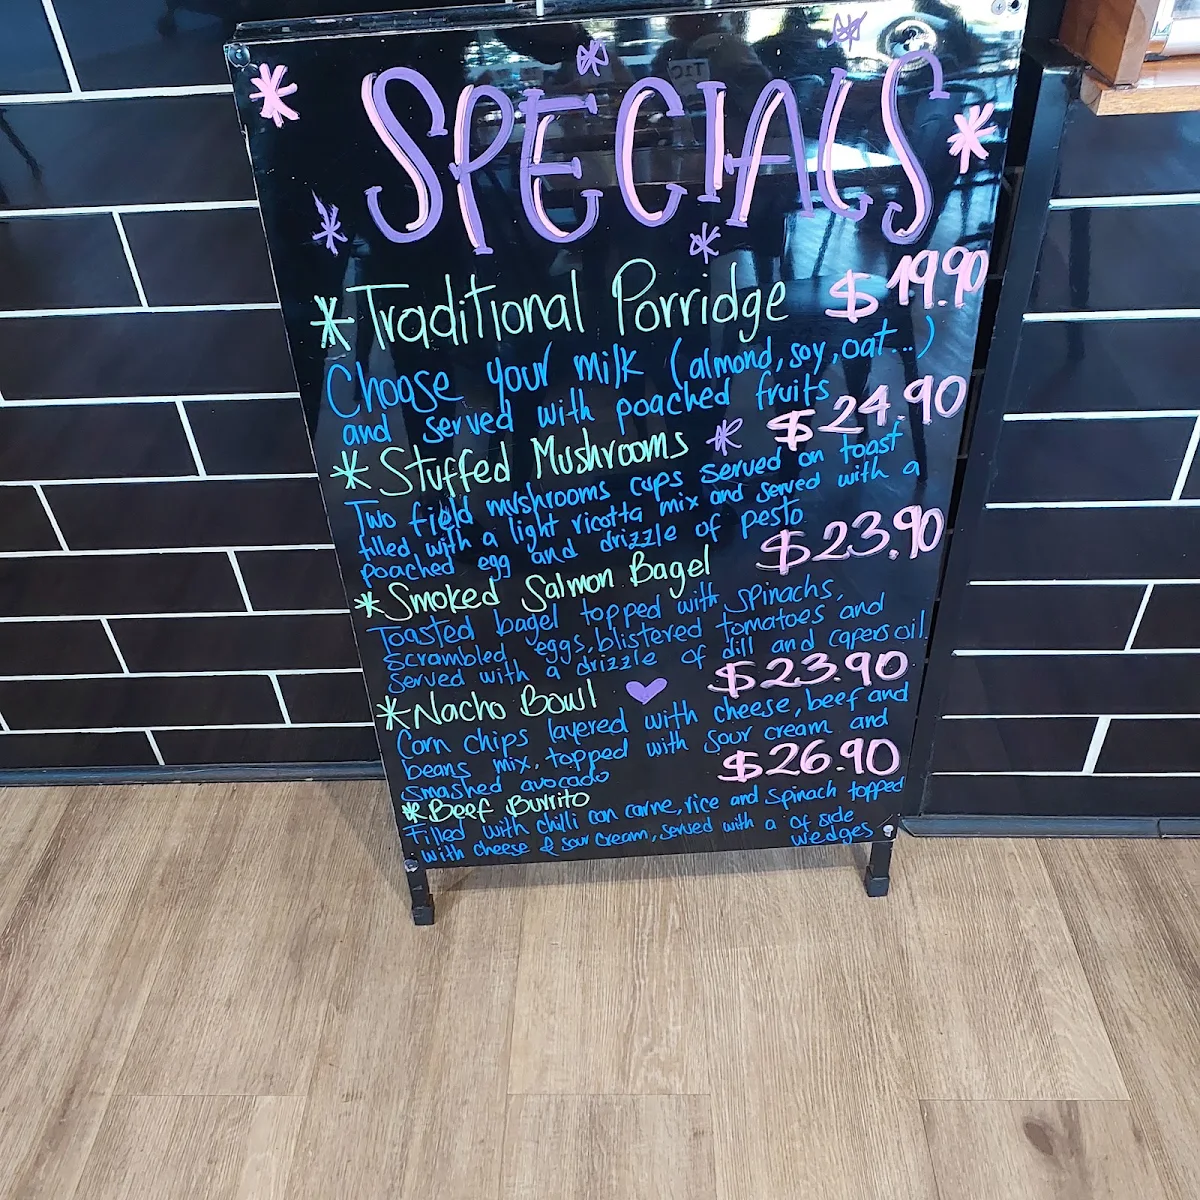 SPECIALS
*Traditional Porridge $19.90
Choose your milk (almond, soy, oat...)
and served with poached fruits
*Stuffed Mushrooms * $24.90
Two field mushrooms cups served on toast
filled with a light ricotta mix and served with a
poached egg and drizzle of pesto
*Smoked Salmon Bagel $23.90
Toasted bagel topped with spinachs,
scrambled eggs, blistered tomatoes and
served with a drizzle of dill and capers oil.
*Nacho Bowl $23.90
Corn chips layered with cheese, beef and
beans mix, topped with sour cream and
smashed avocado
*Beef Burrito $26.90
Filled with chilli con carne, rice and spinach topped
with cheese & sour cream, served with a of side
wedges